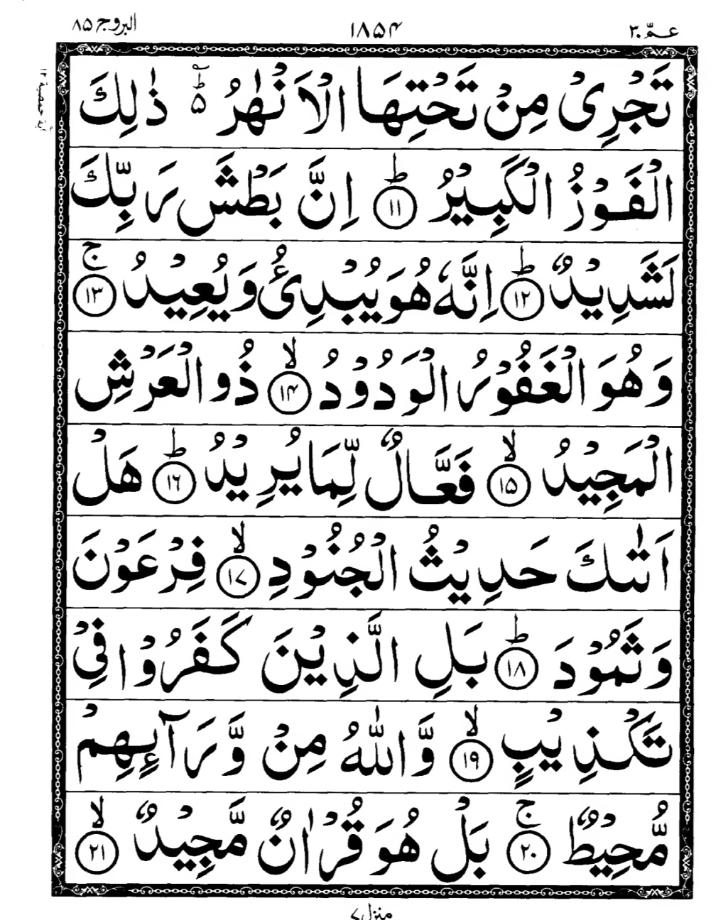 عمّ ٣٠ ١٨٥٤ البروج ٨٥
تَجْرِىْ مِنْ تَحْتِهَا الْاَنْهٰرُ ؕ۬ ذٰلِكَ
الْفَوْزُ الْكَبِيْرُ ؕ﴿۱۱﴾ اِنَّ بَطْشَ رَبِّكَ
لَشَدِيْدٌ ؕ﴿۱۲﴾ اِنَّهٗ هُوَ يُبْدِئُ وَيُعِيْدُ ۚ﴿۱۳﴾
وَهُوَ الْغَفُوْرُ الْوَدُوْدُ ۙ﴿۱۴﴾ ذُو الْعَرْشِ
الْمَجِيْدُ ۙ﴿۱۵﴾ فَعَّالٌ لِّمَا يُرِيْدُ ؕ﴿۱۶﴾ هَلْ
اَتٰىكَ حَدِيْثُ الْجُنُوْدِ ۙ﴿۱۷﴾ فِرْعَوْنَ
وَثَمُوْدَ ؕ﴿۱۸﴾ بَلِ الَّذِيْنَ كَفَرُوْا فِىْ
تَكْذِيْبٍ ۙ﴿۱۹﴾ وَّاللّٰهُ مِنْ وَّرَآئِهِمْ
مُّحِيْطٌ ۚ﴿۲۰﴾ بَلْ هُوَ قُرْاٰنٌ مَّجِيْدٌ ۙ﴿۲۱﴾
منزل ٧